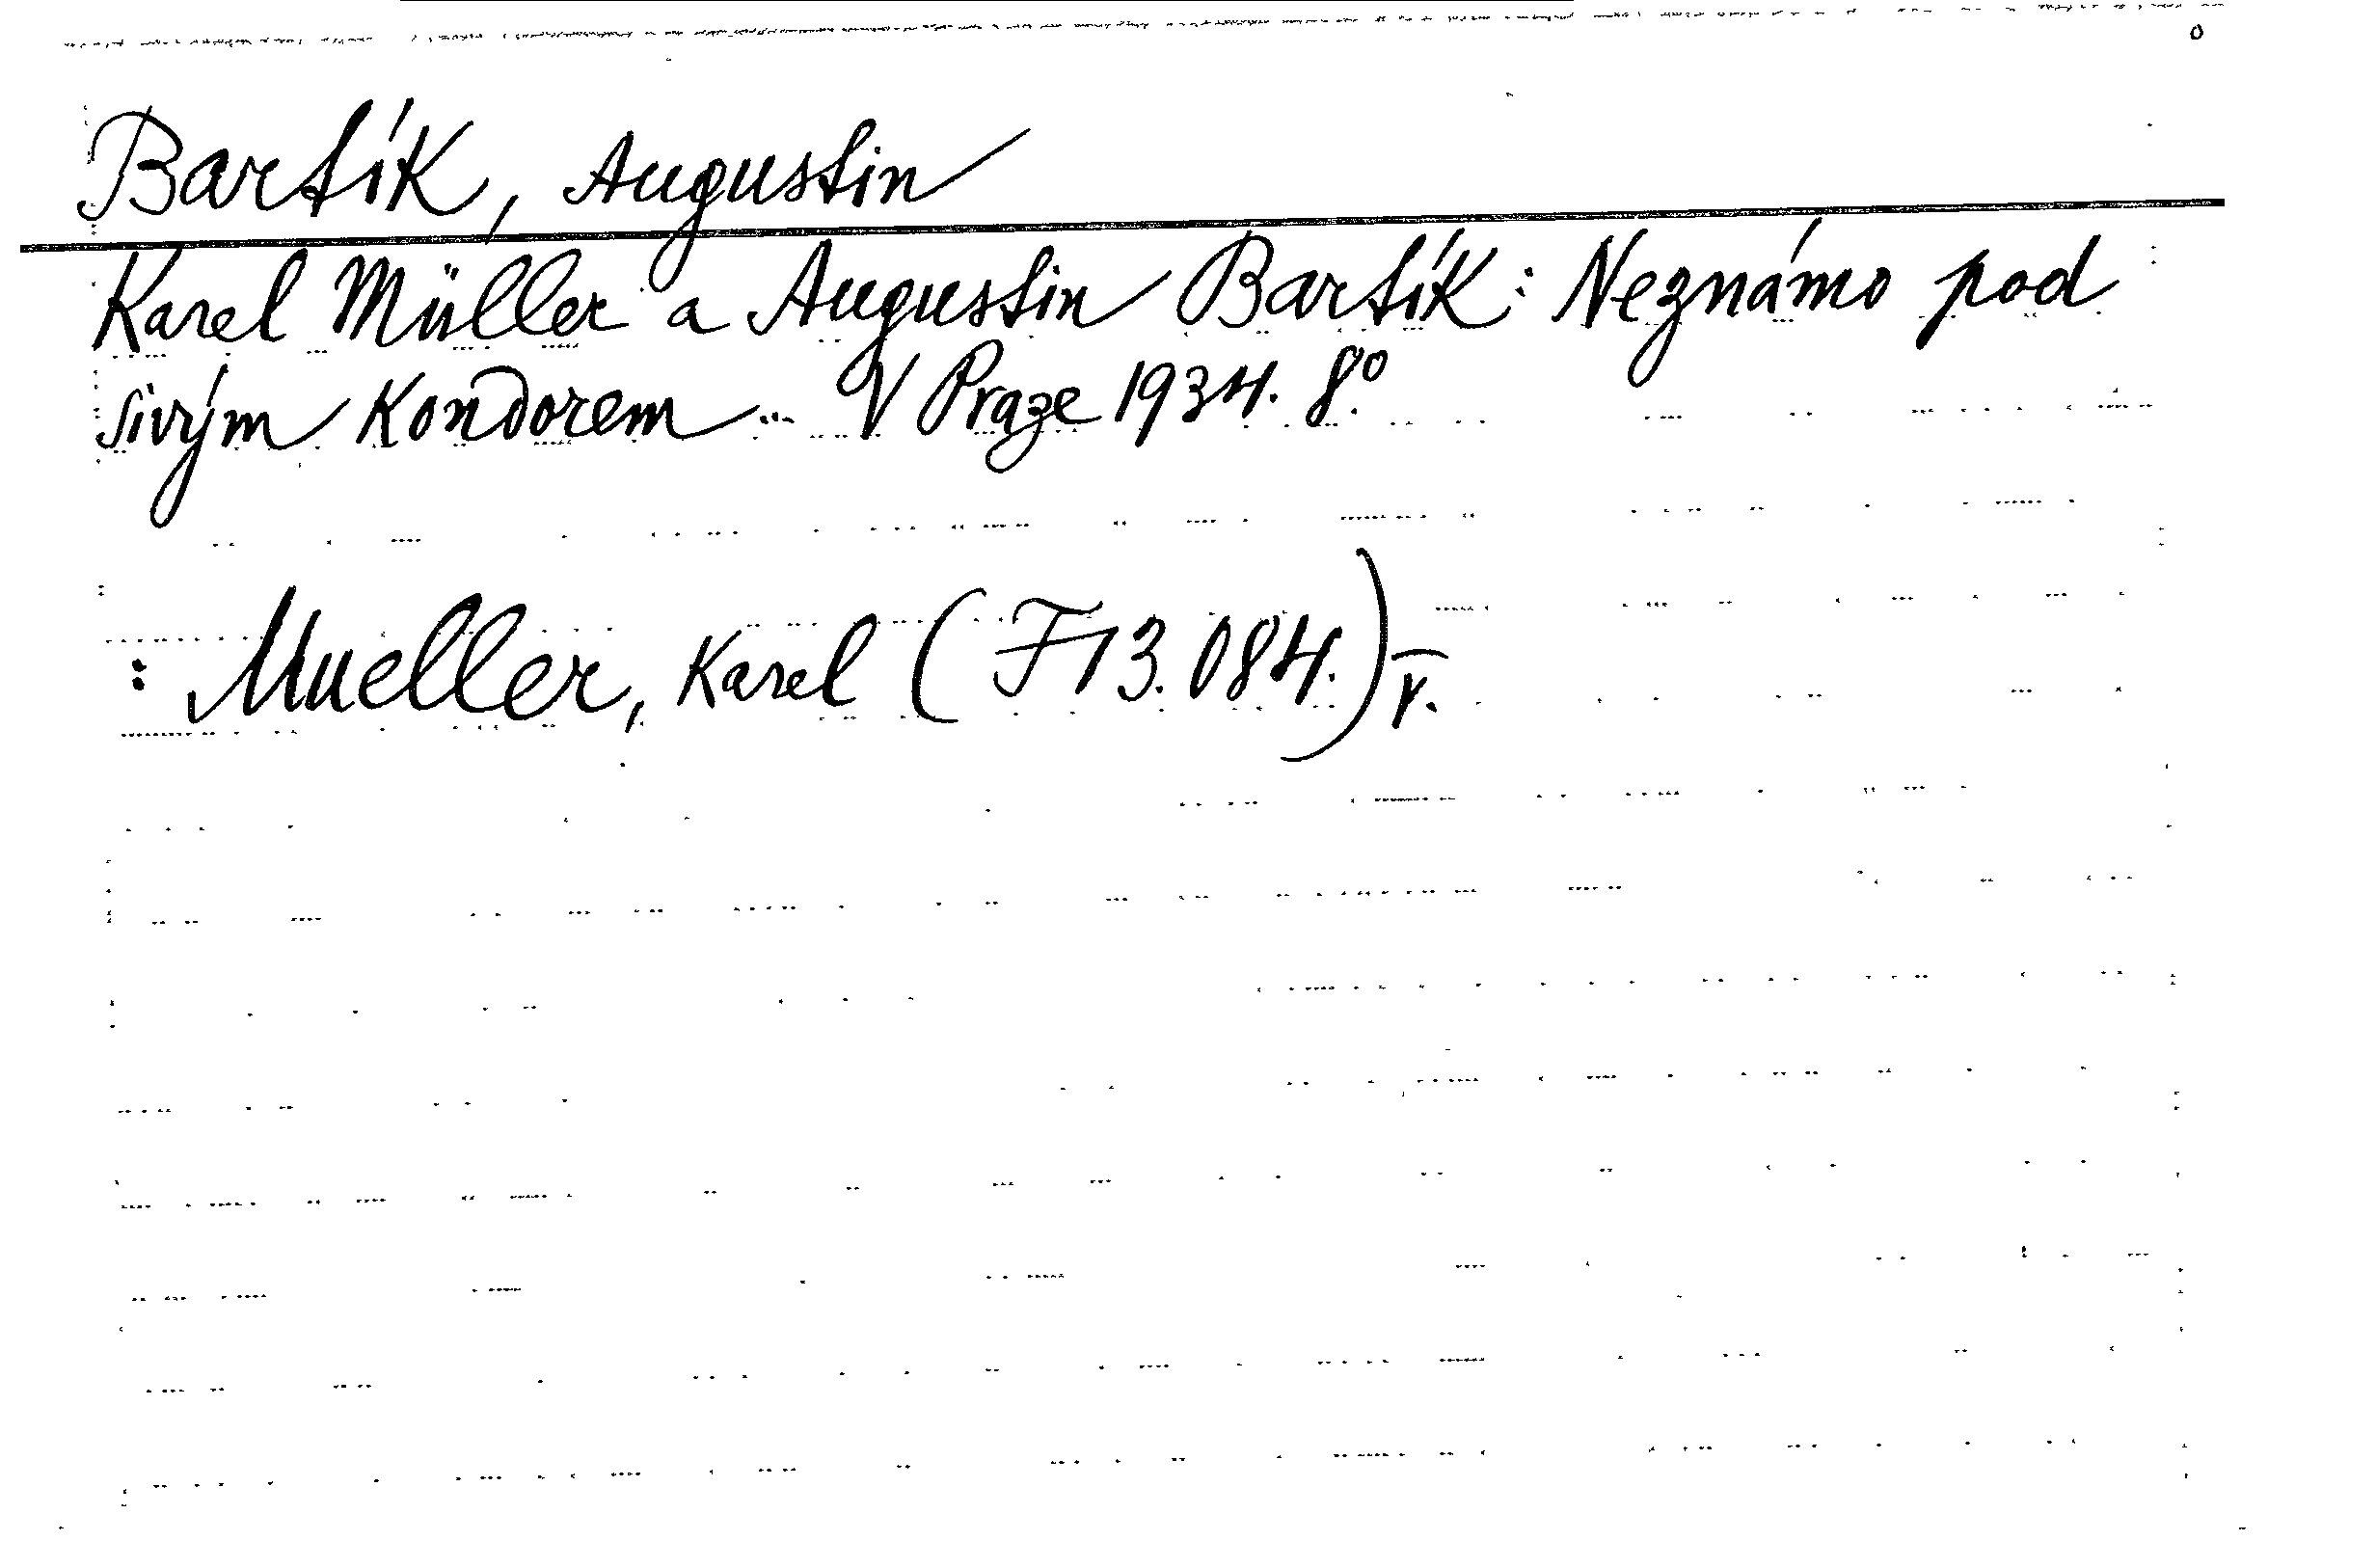 Bartík, Augustin
Karel Müller a Augustin Bartík: Neznámo pod
sivým Kondorem... V Praze 1934. 8.º
: Mueller, Karel (F13.084.)